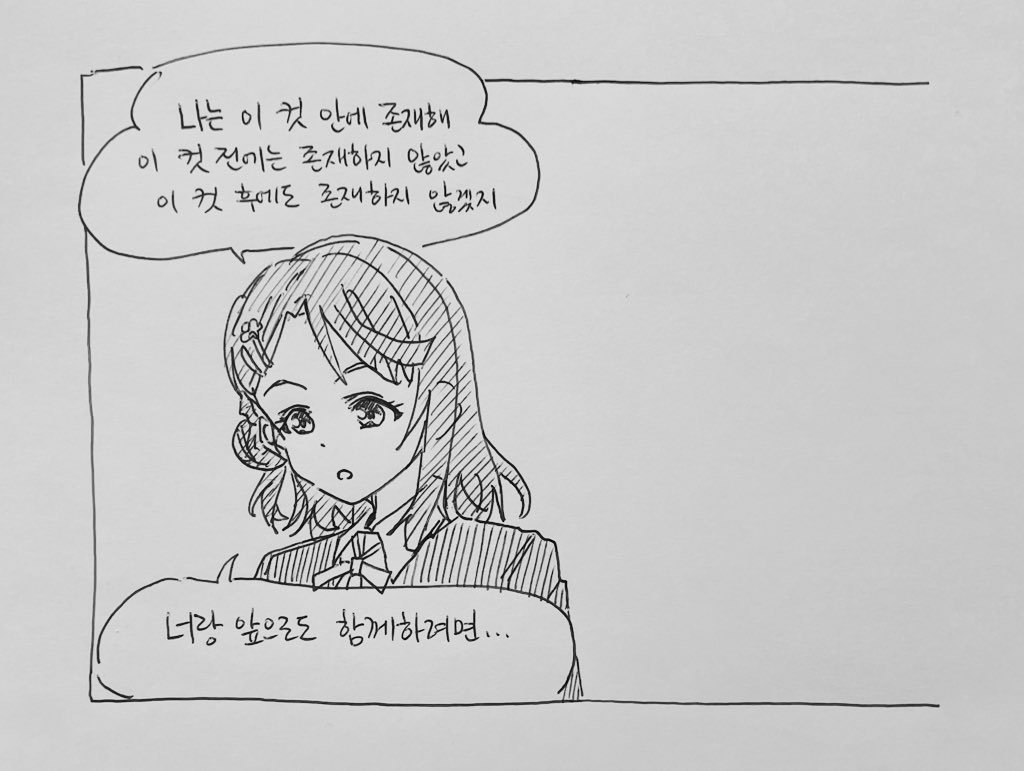 나는 이 컷 안에 존재해
이 컷 전에는 존재하지 않았고
이 컷 후에도 존재하지 않겠지
너랑 앞으로도 함께하려면...